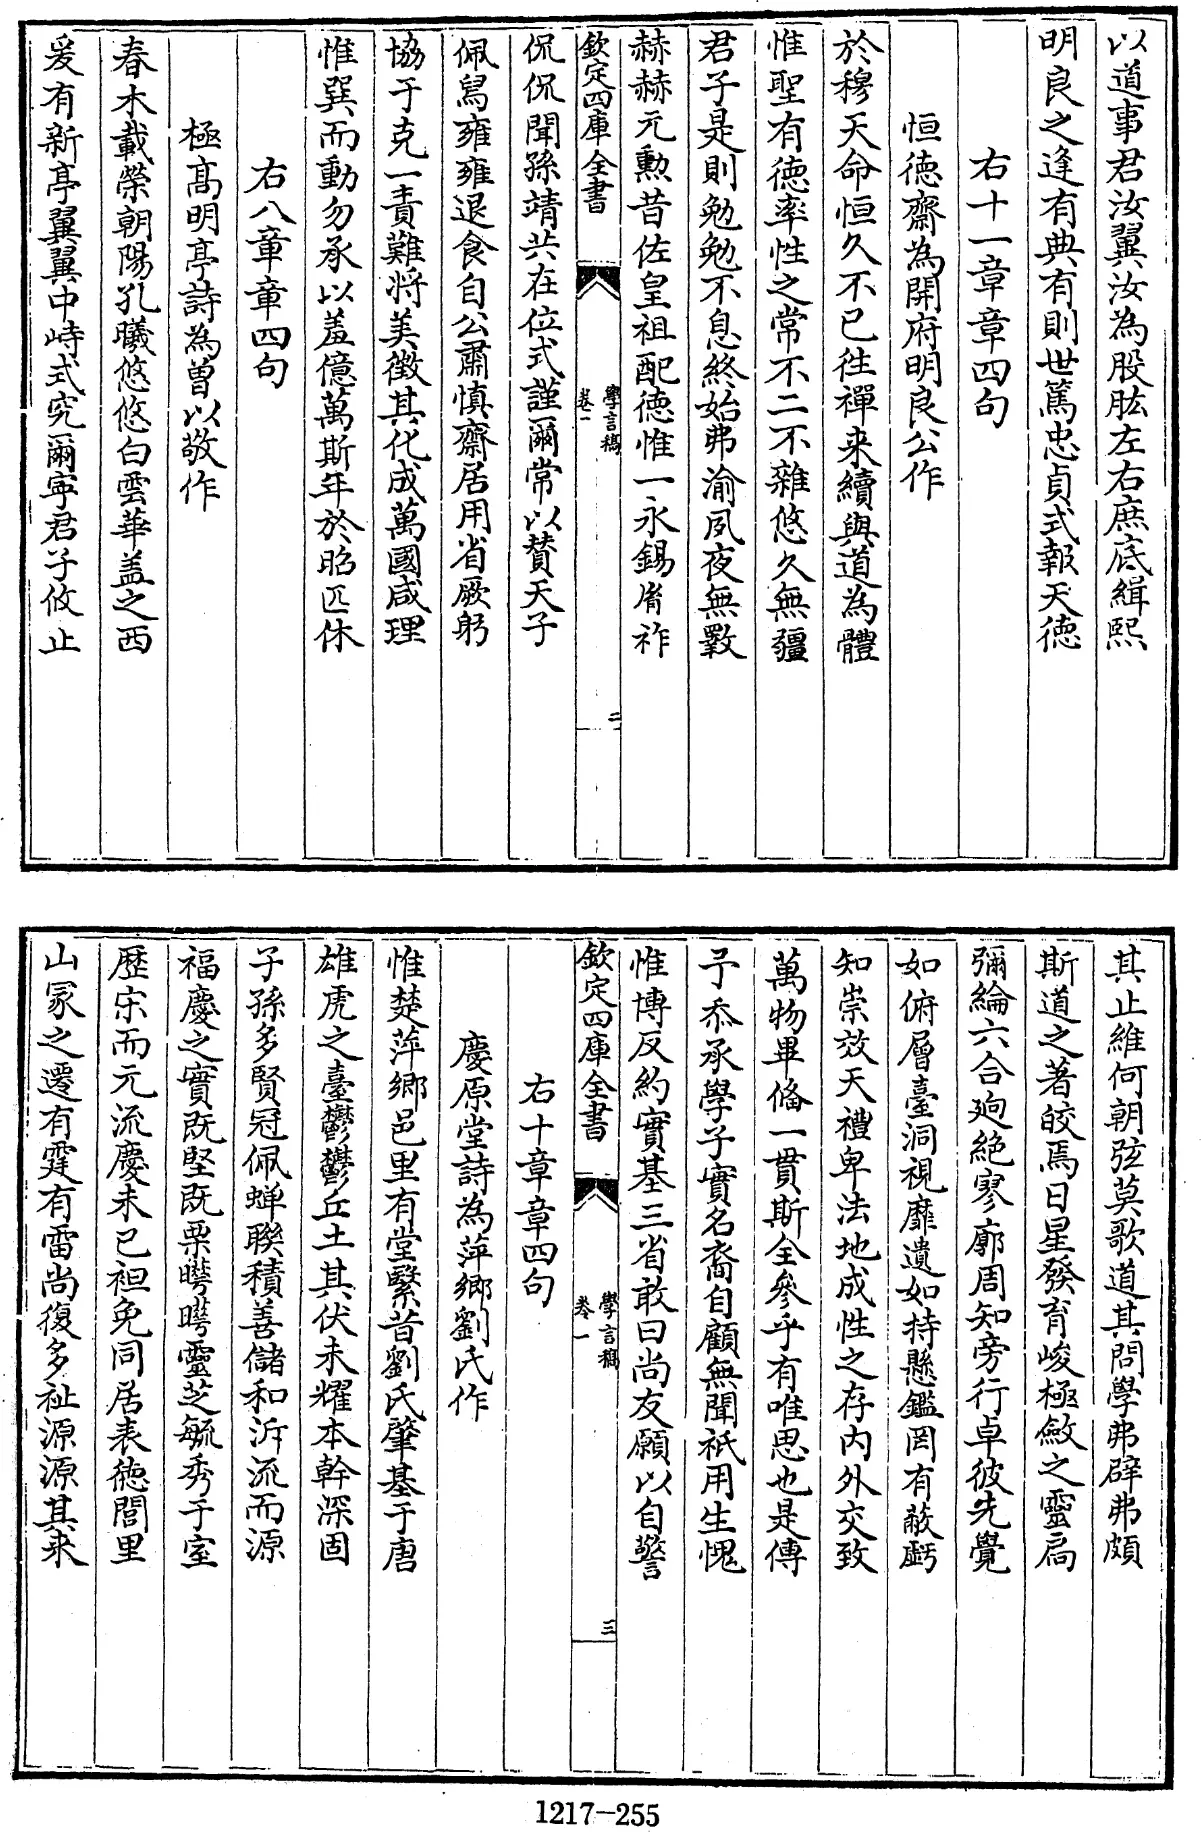 以道事君汝翼汝為股肱左右庶底緝熙
明良之逢有典有則世篤忠貞式報天德
右十一章章四句
恒德齋為開府明良公作
於穆天命恒久不已徃禪来續與道為體
惟聖有德率性之常不二不雜悠久無疆
君子是則勉勉不息終始弗渝夙夜無斁
赫赫元勲昔佐皇祖配德惟一永錫胥祚
欽定四庫全書
學言稿
卷一
二
侃侃聞孫靖共在位式謹爾常以賛天子
佩舄雍雍退食自公肅慎齋居用省厥躬
協于克一責難将美徵其化成萬國咸理
惟巽而動勿承以羞億萬斯年於昭匹休
右八章章四句
極高明亭詩為曽以敬作
春木載榮朝陽孔曦悠悠白雲華盖之西
爰有新亭翼翼中峙式究爾寧君子攸止
其止維何朝弦莫歌道其問學弗辟弗頗
斯道之著皎焉日星發育峻極斂之靈扃
彌綸六合逈絶寥廓周知旁行卓彼先覺
如俯層臺洞視靡遺如持懸鑑罔有蔽虧
知崇效天禮卑法地成性之存内外交致
萬物畢偹一貫斯全參乎有唯思也是傳
予忝承學子實名裔自顧無聞祇用生愧
惟博反約實基三省敢曰尚友願以自警
欽定四庫全書
學言稿
卷一
三
右十章章四句
慶原堂詩為萍鄉劉氏作
惟楚萍鄉邑里有堂繄昔劉氏肇基于唐
雄虎之臺鬱鬱丘土其伏未耀本幹深固
子孫多賢冠佩蟬聯積善儲和泝流而源
福慶之實既堅既栗曄曄靈芝毓秀于室
歴宋而元流慶未已袒免同居表德閭里
山冢之遷有霆有雷尚復多祉源源其来
1217-255